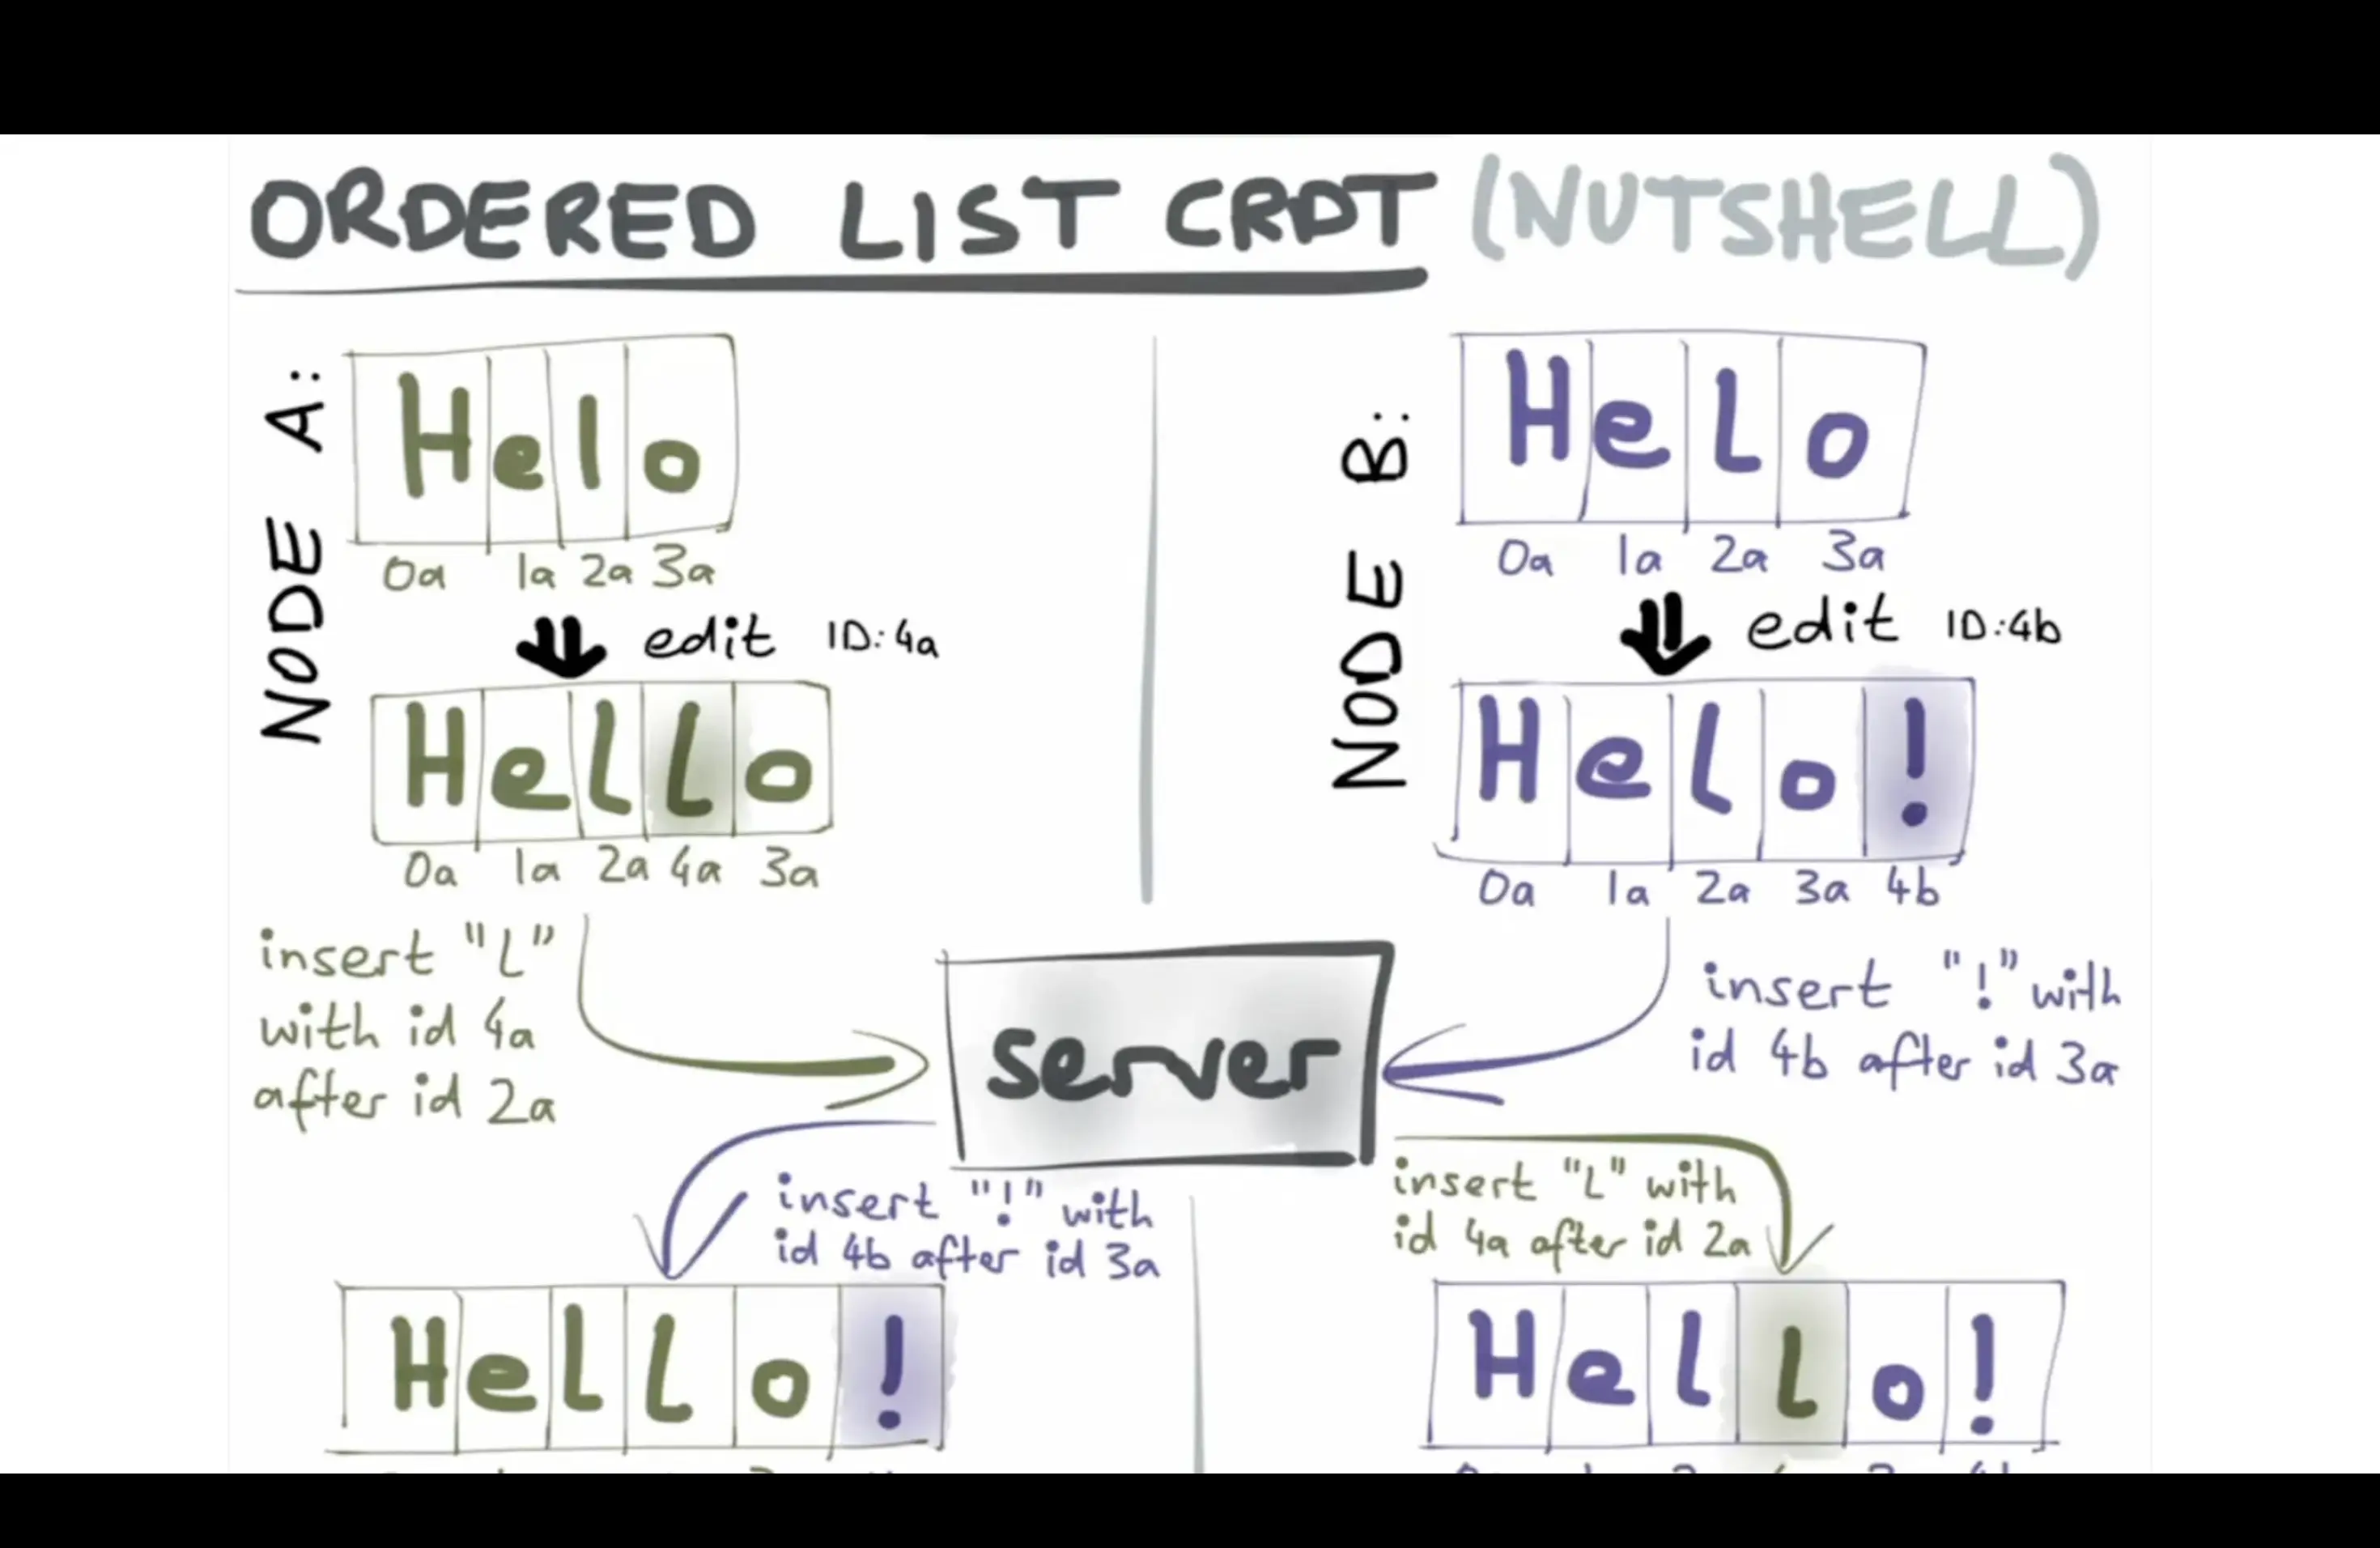 ORDERED LIST CRDT (NUTSHELL)
NODE A:
Helo
0a 1a 2a 3a
edit ID:4a
Hello
0a 1a 2a 4a 3a
insert "l"
with id 4a
after id 2a
NODE B:
Helo
0a 1a 2a 3a
edit ID:4b
Helo!
0a 1a 2a 3a 4b
insert "!" with
id 4b after id 3a
server
insert "!" with
id 4b after id 3a
Hello!
insert "l" with
id 4a after id 2a
Hello!